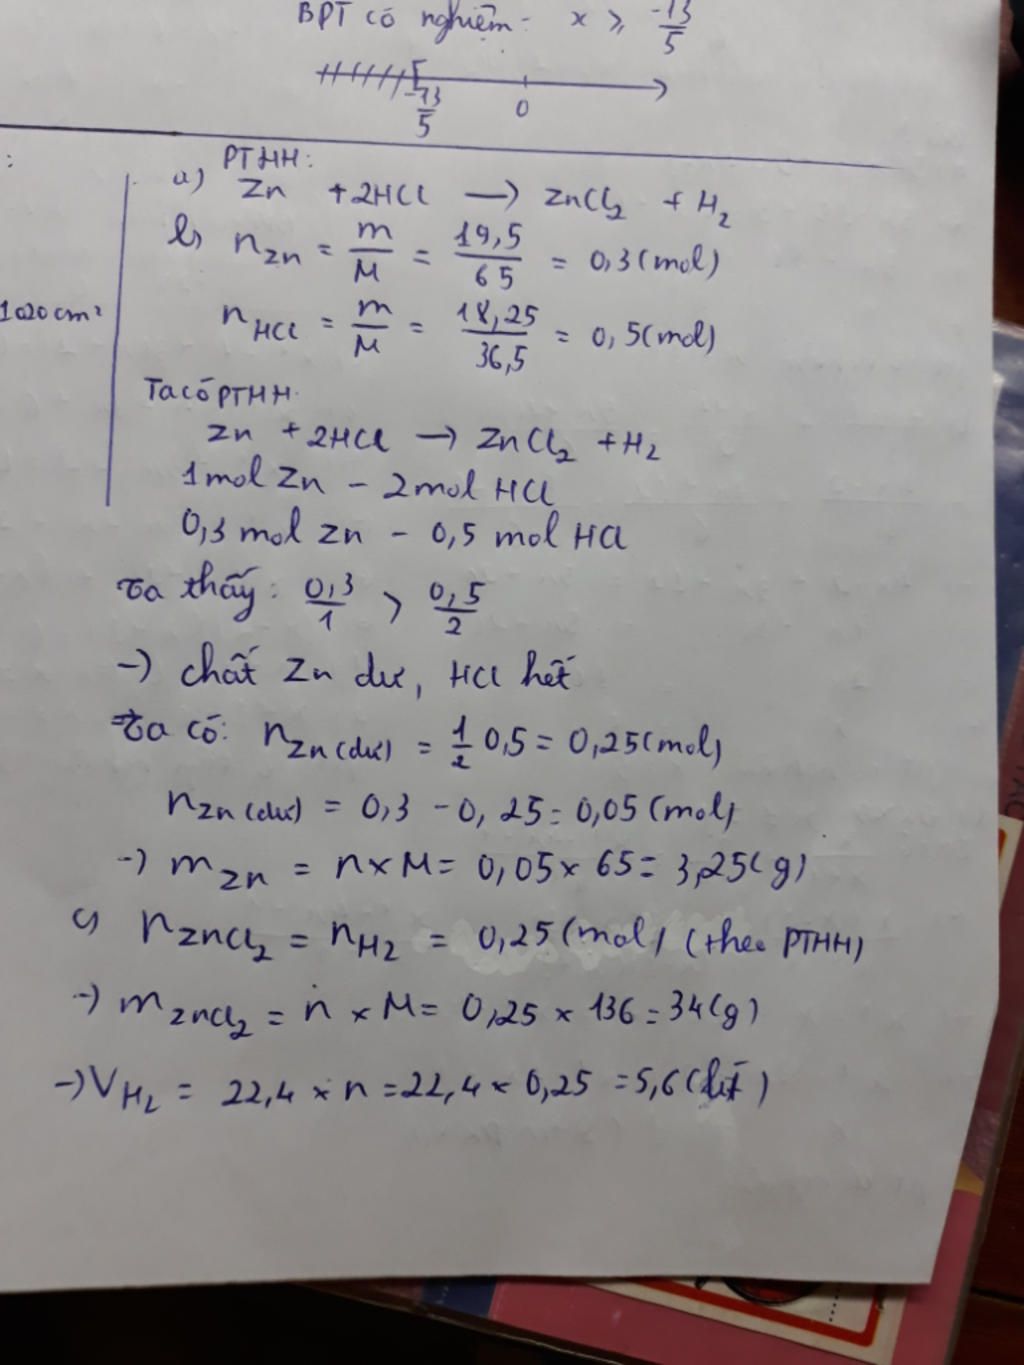 BPT có nghiệm: x ⩾ -13/5
-13/5 0
:
PTHH:
a) Zn + 2HCl → ZnCl₂ + H₂
b) nZn = m/M = 19,5/65 = 0,3 (mol)
1020cm²
nHCl = m/M = 18,25/36,5 = 0,5 (mol)
Ta có PTHH:
Zn + 2HCl → ZnCl₂ + H₂
1mol Zn - 2mol HCl
0,3 mol Zn - 0,5 mol HCl
Ta thấy: 0,3/1 > 0,5/2
→ chất Zn dư, HCl hết
Ta có: nZn(dư) = 1/2 0,5 = 0,25 (mol)
nZn(dư) = 0,3 - 0,25 = 0,05 (mol)
→ mZn = n x M = 0,05 x 65 = 3,25 (g)
c) nZnCl₂ = nH₂ = 0,25 (mol) (theo PTHH)
→ mZnCl₂ = n x M = 0,25 x 136 = 34 (g)
→ VH₂ = 22,4 x n = 22,4 x 0,25 = 5,6 (lít)